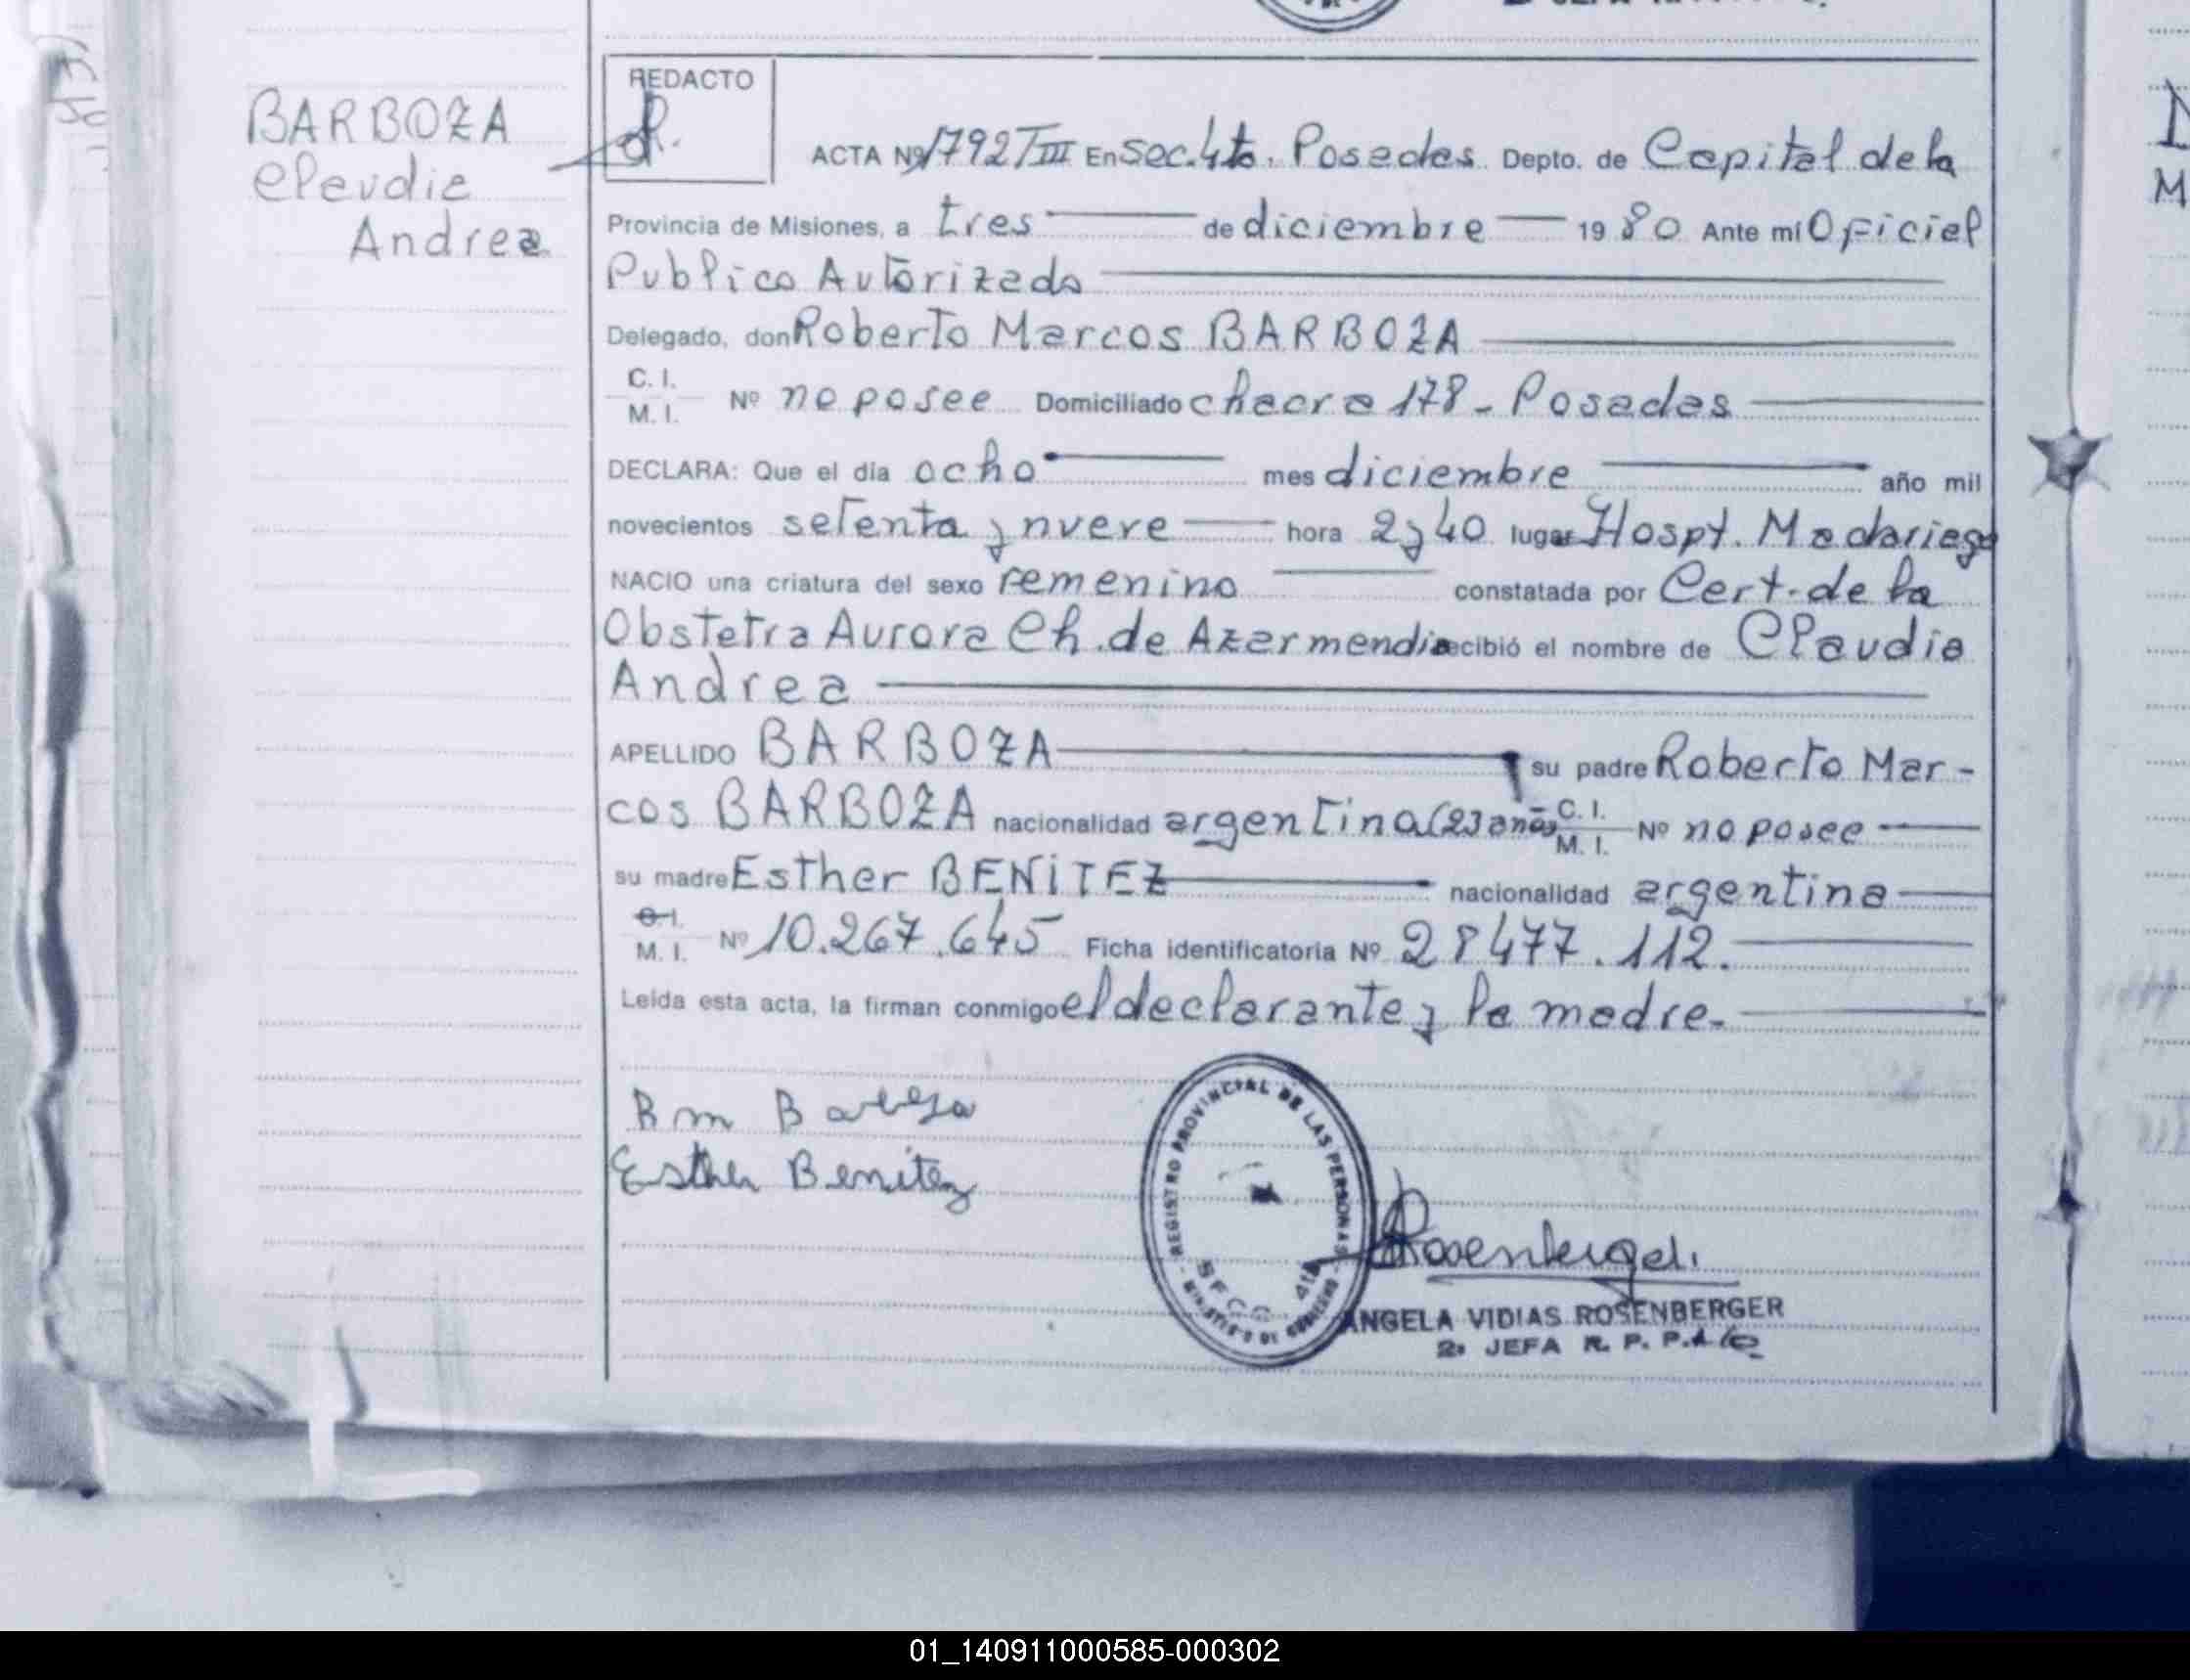 BARBOZA
Claudia
Andrea
REDACTO
ACTA Nº 1792 T III En Sec. 4ta. Posadas Depto. de Capital de la
Provincia de Misiones, a tres de diciembre 1980 Ante mi Oficial
Publico Autorizado
Delegado, don Roberto Marcos BARBOZA
C. I.
M. I. Nº no posee Domiciliado chacra 178 - Posadas
DECLARA: Que el día ocho mes diciembre año mil
novecientos setenta y nueve hora 2 y 40 lugar Hospt. Madariaga
NACIO una criatura del sexo femenino constatada por Cert. de la
Obstetra Aurora Ch. de Azarmendia recibió el nombre de Claudia
Andrea
APELLIDO BARBOZA su padre Roberto Mar-
cos BARBOZA nacionalidad argentina (23 años) C. I. M. I. Nº no posee
su madre Esther BENITEZ nacionalidad argentina
C. I.
M. I. Nº 10.267.645 Ficha identificatoria Nº 28477.112.
Leida esta acta, la firman conmigo el declarante y la madre.
R m Barboza
Esther Benitez
REGISTRO PROVINCIAL DE LAS PERSONAS
MINISTERIO DE GOBIERNO
ANGELA VIDIAS ROSENBERGER
2ª JEFA R. P. P.
01_140911000585-000302